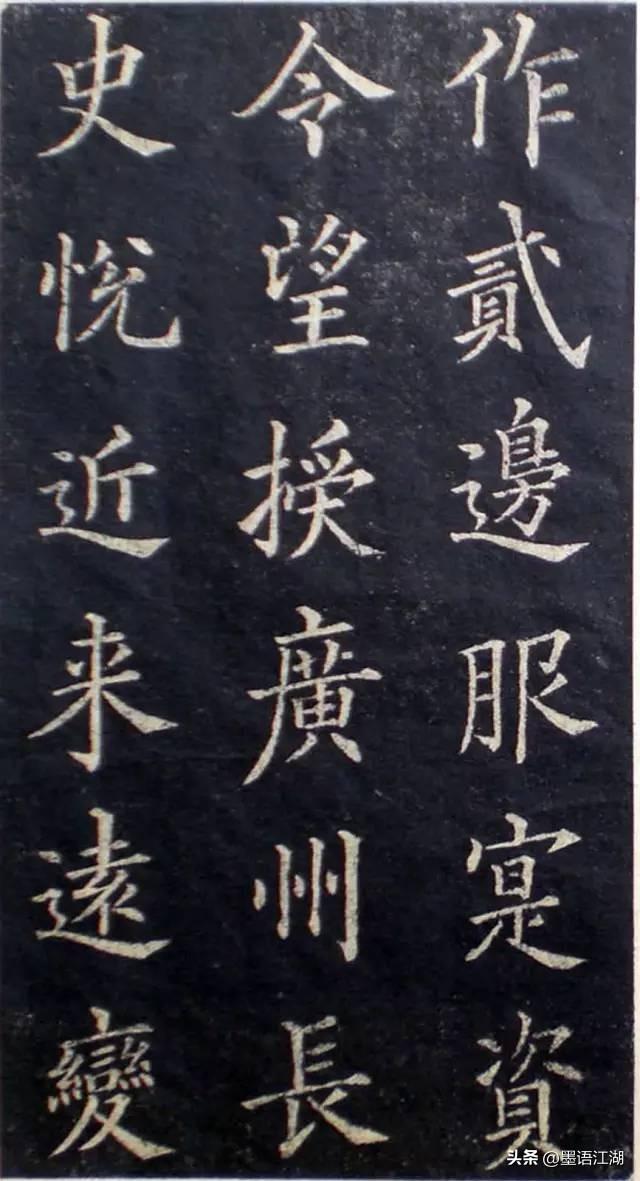 作貳邊服寔資
令望授廣州長
史悅近来遠變
头条 @墨语江湖